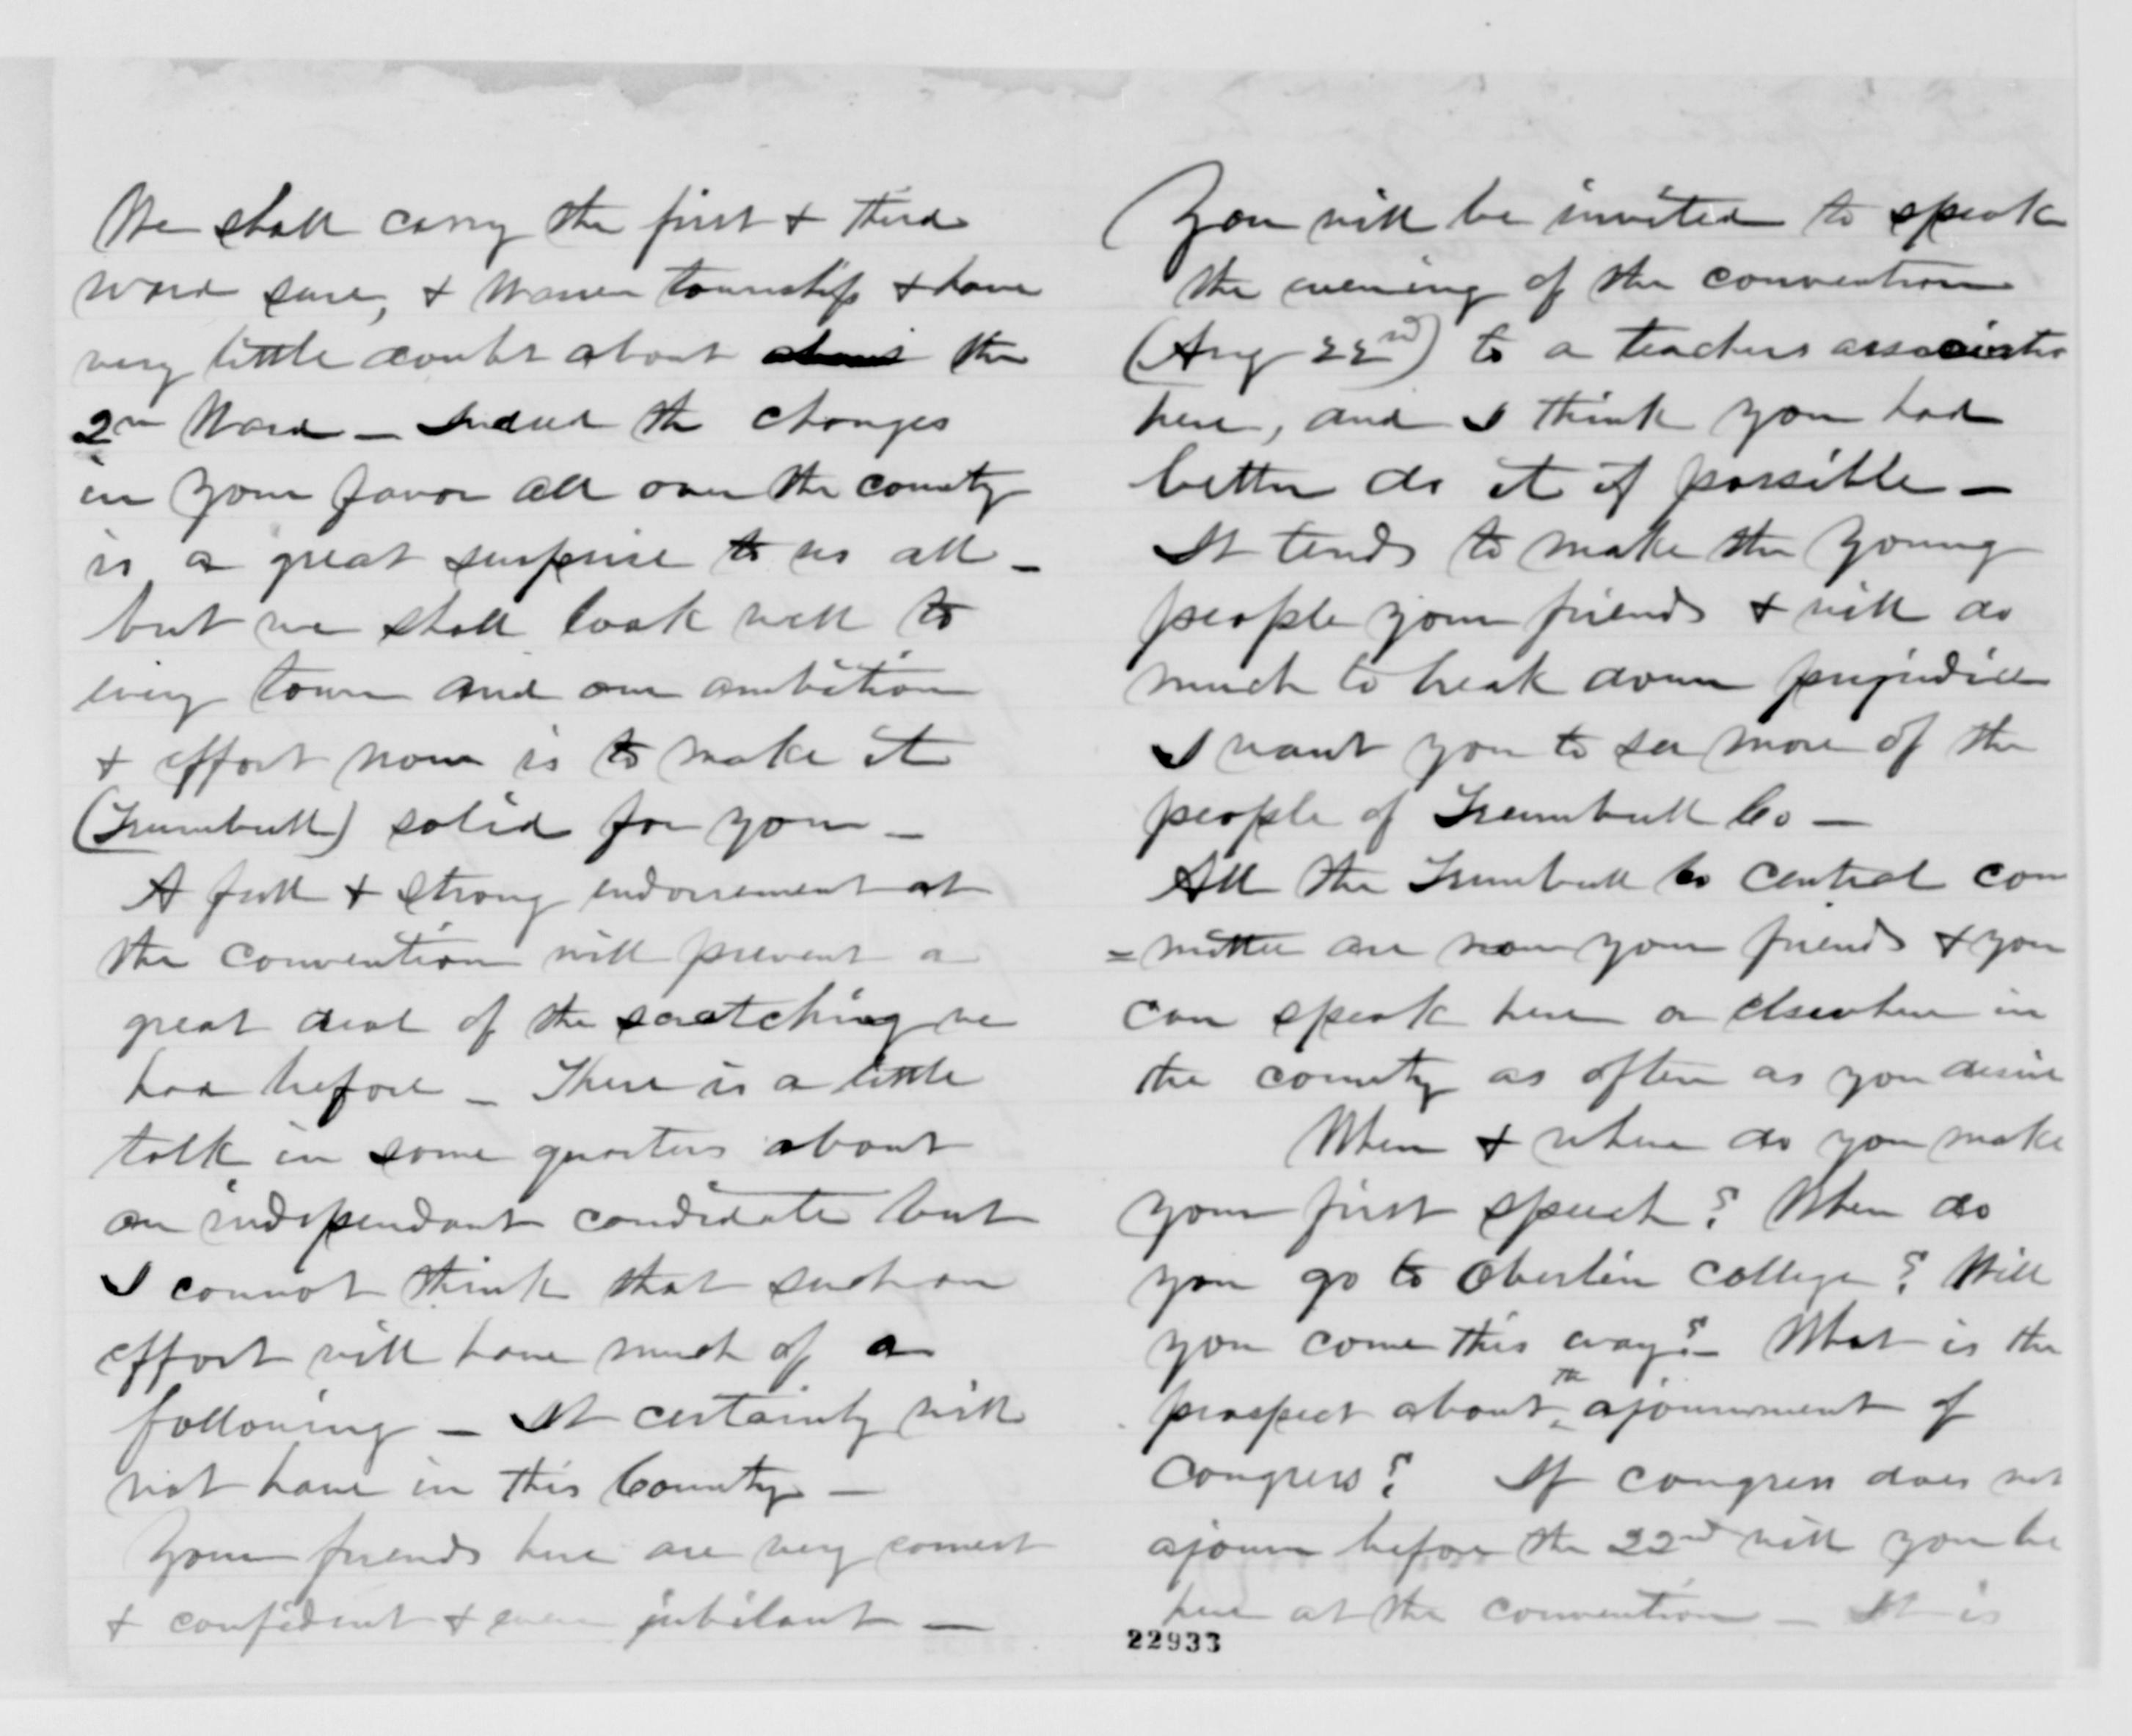 We shall carry the first + third
ward sure, + Warren township + have
very little doubt about about the
2nd Ward — Indeed the changes
in your favor all over the county
is a great surprise to us all —
but we shall look well to
every town and our ambition
+ effort now is to make it
(Trumbull) solid for you —
A full + strong endorsement at
the convention will prevent a
great deal of the scratching we
had before — There is a little
talk in some quarters about
an independant candidate but
I cannot think that such an
effort will have much of a
following — It certainly will
not have in this County —
Your friends here are very earnest
+ confident + even jubilant —
You will be invited to speak
the evening of the convention
(Aug 22nd) to a teachers association
here, and I think you had
better do it if possible —
It tends to make the young
people your friends + will do
much to break down prejudice
I want you to see more of the
people of Trumbull Co —
All the Trumbull Co central com
= mittee are now your friends + you
can speak here or elsewhere in
the county as often as you desire
When + where do you make
your first speech? When do
you go to Oberlin College? Will
you come this way? — What is the
prospect about the ajournment of
Congress? If congress does not
ajourn before the 22nd will you be
here at the convention — It is
22933